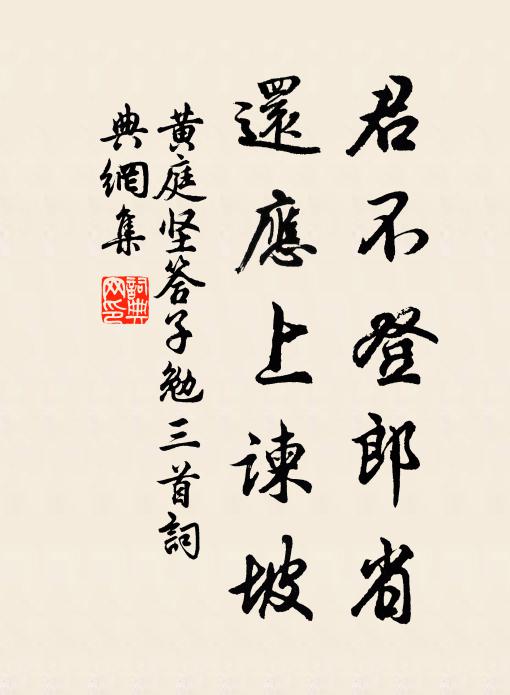 君不登郎省
還應上諫坡
黄庭坚答子勉三首詞
典網集
詞典
网印